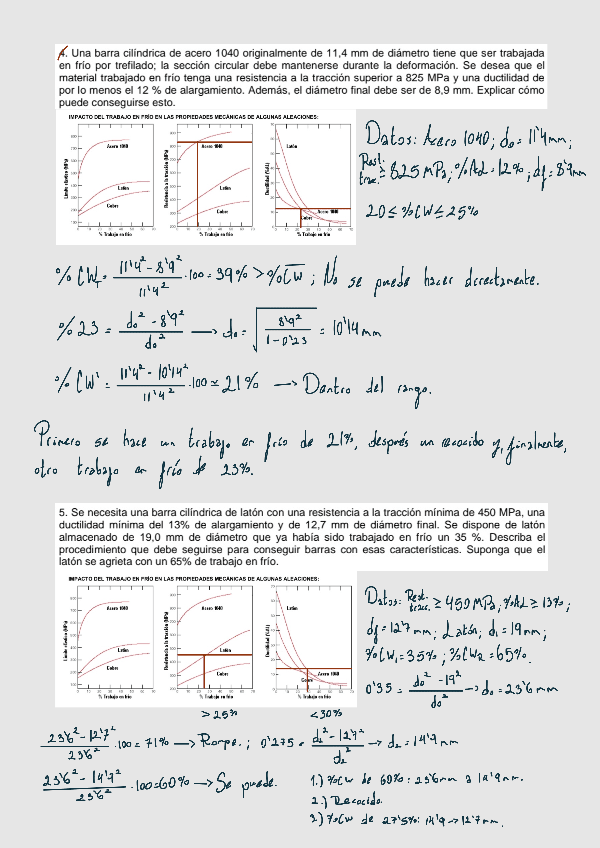 4. Una barra cilíndrica de acero 1040 originalmente de 11,4 mm de diámetro tiene que ser trabajada
en frío por trefilado; la sección circular debe mantenerse durante la deformación. Se desea que el
material trabajado en frío tenga una resistencia a la tracción superior a 825 MPa y una ductilidad de
por lo menos el 12 % de alargamiento. Además, el diámetro final debe ser de 8,9 mm. Explicar cómo
puede conseguirse esto.
IMPACTO DEL TRABAJO EN FRÍO EN LAS PROPIEDADES MECÁNICAS DE ALGUNAS ALEACIONES:
Acero 1040
Latón
Cobre
Límite elástico (MPa)
% Trabajo en frío
Acero 1040
Latón
Cobre
Resistencia a la tracción (MPa)
% Trabajo en frío
Latón
Acero 1040
Cobre
Ductilidad (%AL)
% Trabajo en frío
Datos: Acero 1040; do = 11'4mm;
Rest. trac. ≥ 825 MPa; %AL = 12%; df = 8'9mm
20 ≤ %CW ≤ 25%
%CWT = (11'4² - 8'9²)/11'4² · 100 = 39% > %CW; No se puede hacer directamente.
%23 = (do² - 8'9²)/do² → do = √(8'9²/(1-0'23)) = 10'14mm
%CW' = (11'4² - 10'14²)/11'4² · 100 ≃ 21% → Dentro del rango.
Primero se hace un trabajo en frío de 21%, después un recocido y, finalmente,
otro trabajo en frío de 23%.
5. Se necesita una barra cilíndrica de latón con una resistencia a la tracción mínima de 450 MPa, una
ductilidad mínima del 13% de alargamiento y de 12,7 mm de diámetro final. Se dispone de latón
almacenado de 19,0 mm de diámetro que ya había sido trabajado en frío un 35 %. Describa el
procedimiento que debe seguirse para conseguir barras con esas características. Suponga que el
latón se agrieta con un 65% de trabajo en frío.
IMPACTO DEL TRABAJO EN FRÍO EN LAS PROPIEDADES MECÁNICAS DE ALGUNAS ALEACIONES:
Acero 1040
Latón
Cobre
Límite elástico (MPa)
% Trabajo en frío
Acero 1040
Latón
Cobre
Resistencia a la tracción (MPa)
% Trabajo en frío
Latón
Acero 1040
Cobre
Ductilidad (%AL)
% Trabajo en frío
Datos: Rest. trac. ≥ 450MPa; %AL ≥ 13%;
df = 12'7 mm; Latón; d1 = 19mm;
%CW1 = 35%; %CWR = 65%.
0'35 = (do² - 19²)/do² → do = 23'6 mm
>25% <30%
(23'6² - 12'7²)/23'6² · 100 = 71% → Rompe.; 0'275 = (d2² - 12'7²)/d2² → d2 = 14'9mm
(23'6² - 14'9²)/23'6² · 100 = 60% → Se puede.
1.) %CW de 60%: 23'6mm a 14'9mm.
2.) Recocido.
3.) %CW de 27'5%: 14'9 → 12'7mm.